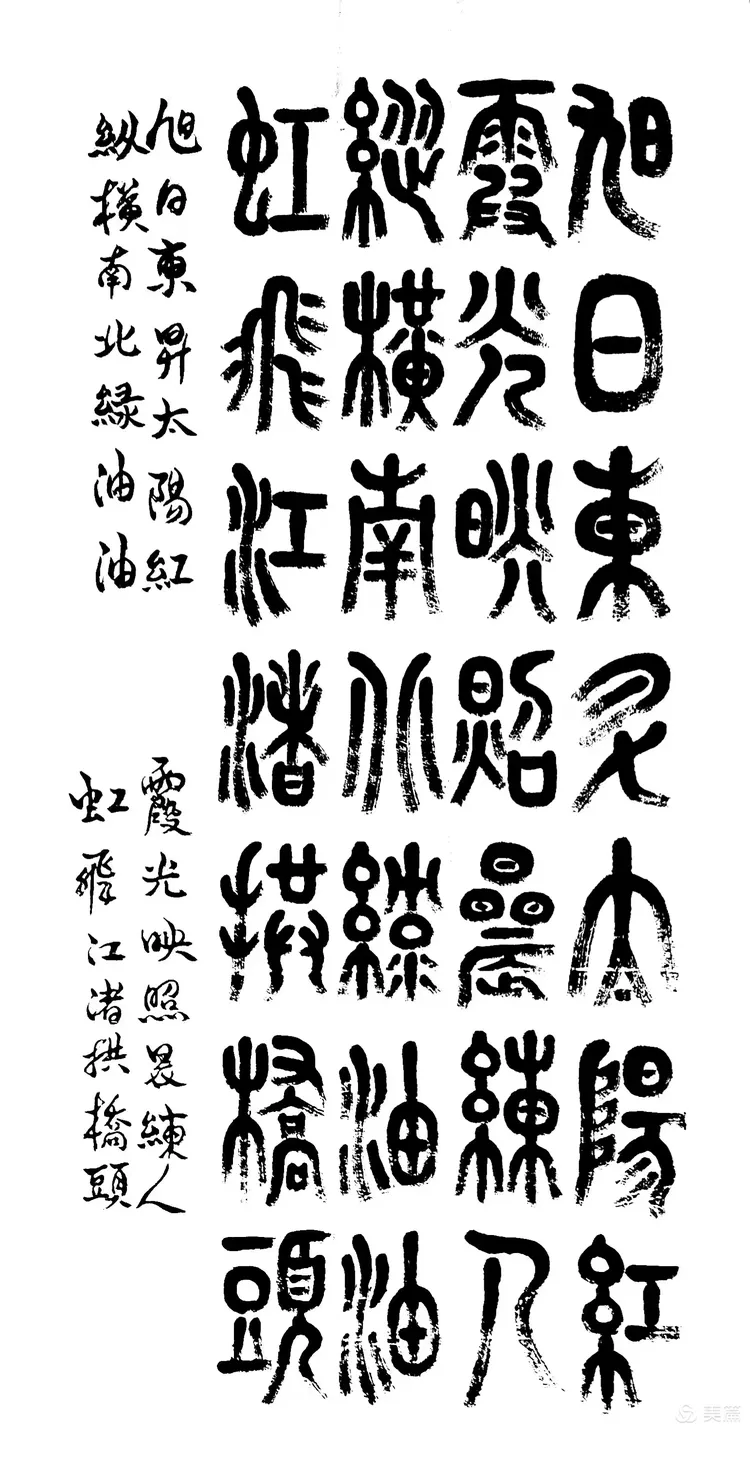 旭日東昇太陽紅
霞光映照晨練人
縱橫南北綠油油
虹飛江渚拱橋頭
旭日東昇太陽紅
霞光映照晨練人
縱橫南北緑油油
虹飛江渚拱橋頭
美篇